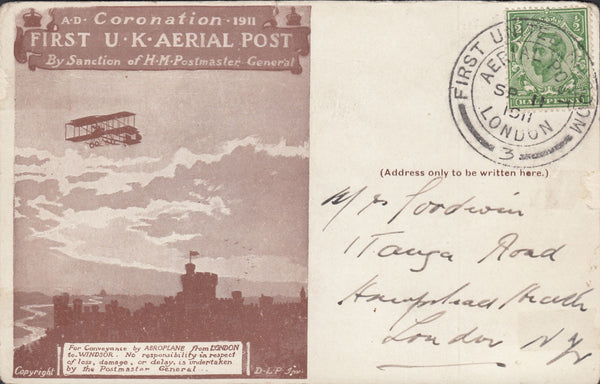 A·D· Coronation · 1911
FIRST U·K·AERIAL POST
By Sanction of H·M·Postmaster General
For Conveyance by AEROPLANE from LONDON
to WINDSOR. No responsibility in respect
of loss, damage, or delay, is undertaken
by the Postmaster General.
Copyright
FIRST
AERIAL POST
SP 11
1911
LONDON
3
HALFPENNY
(Address only to be written here.)
Mrs Goodwin
Road
Hampstead Heath
London